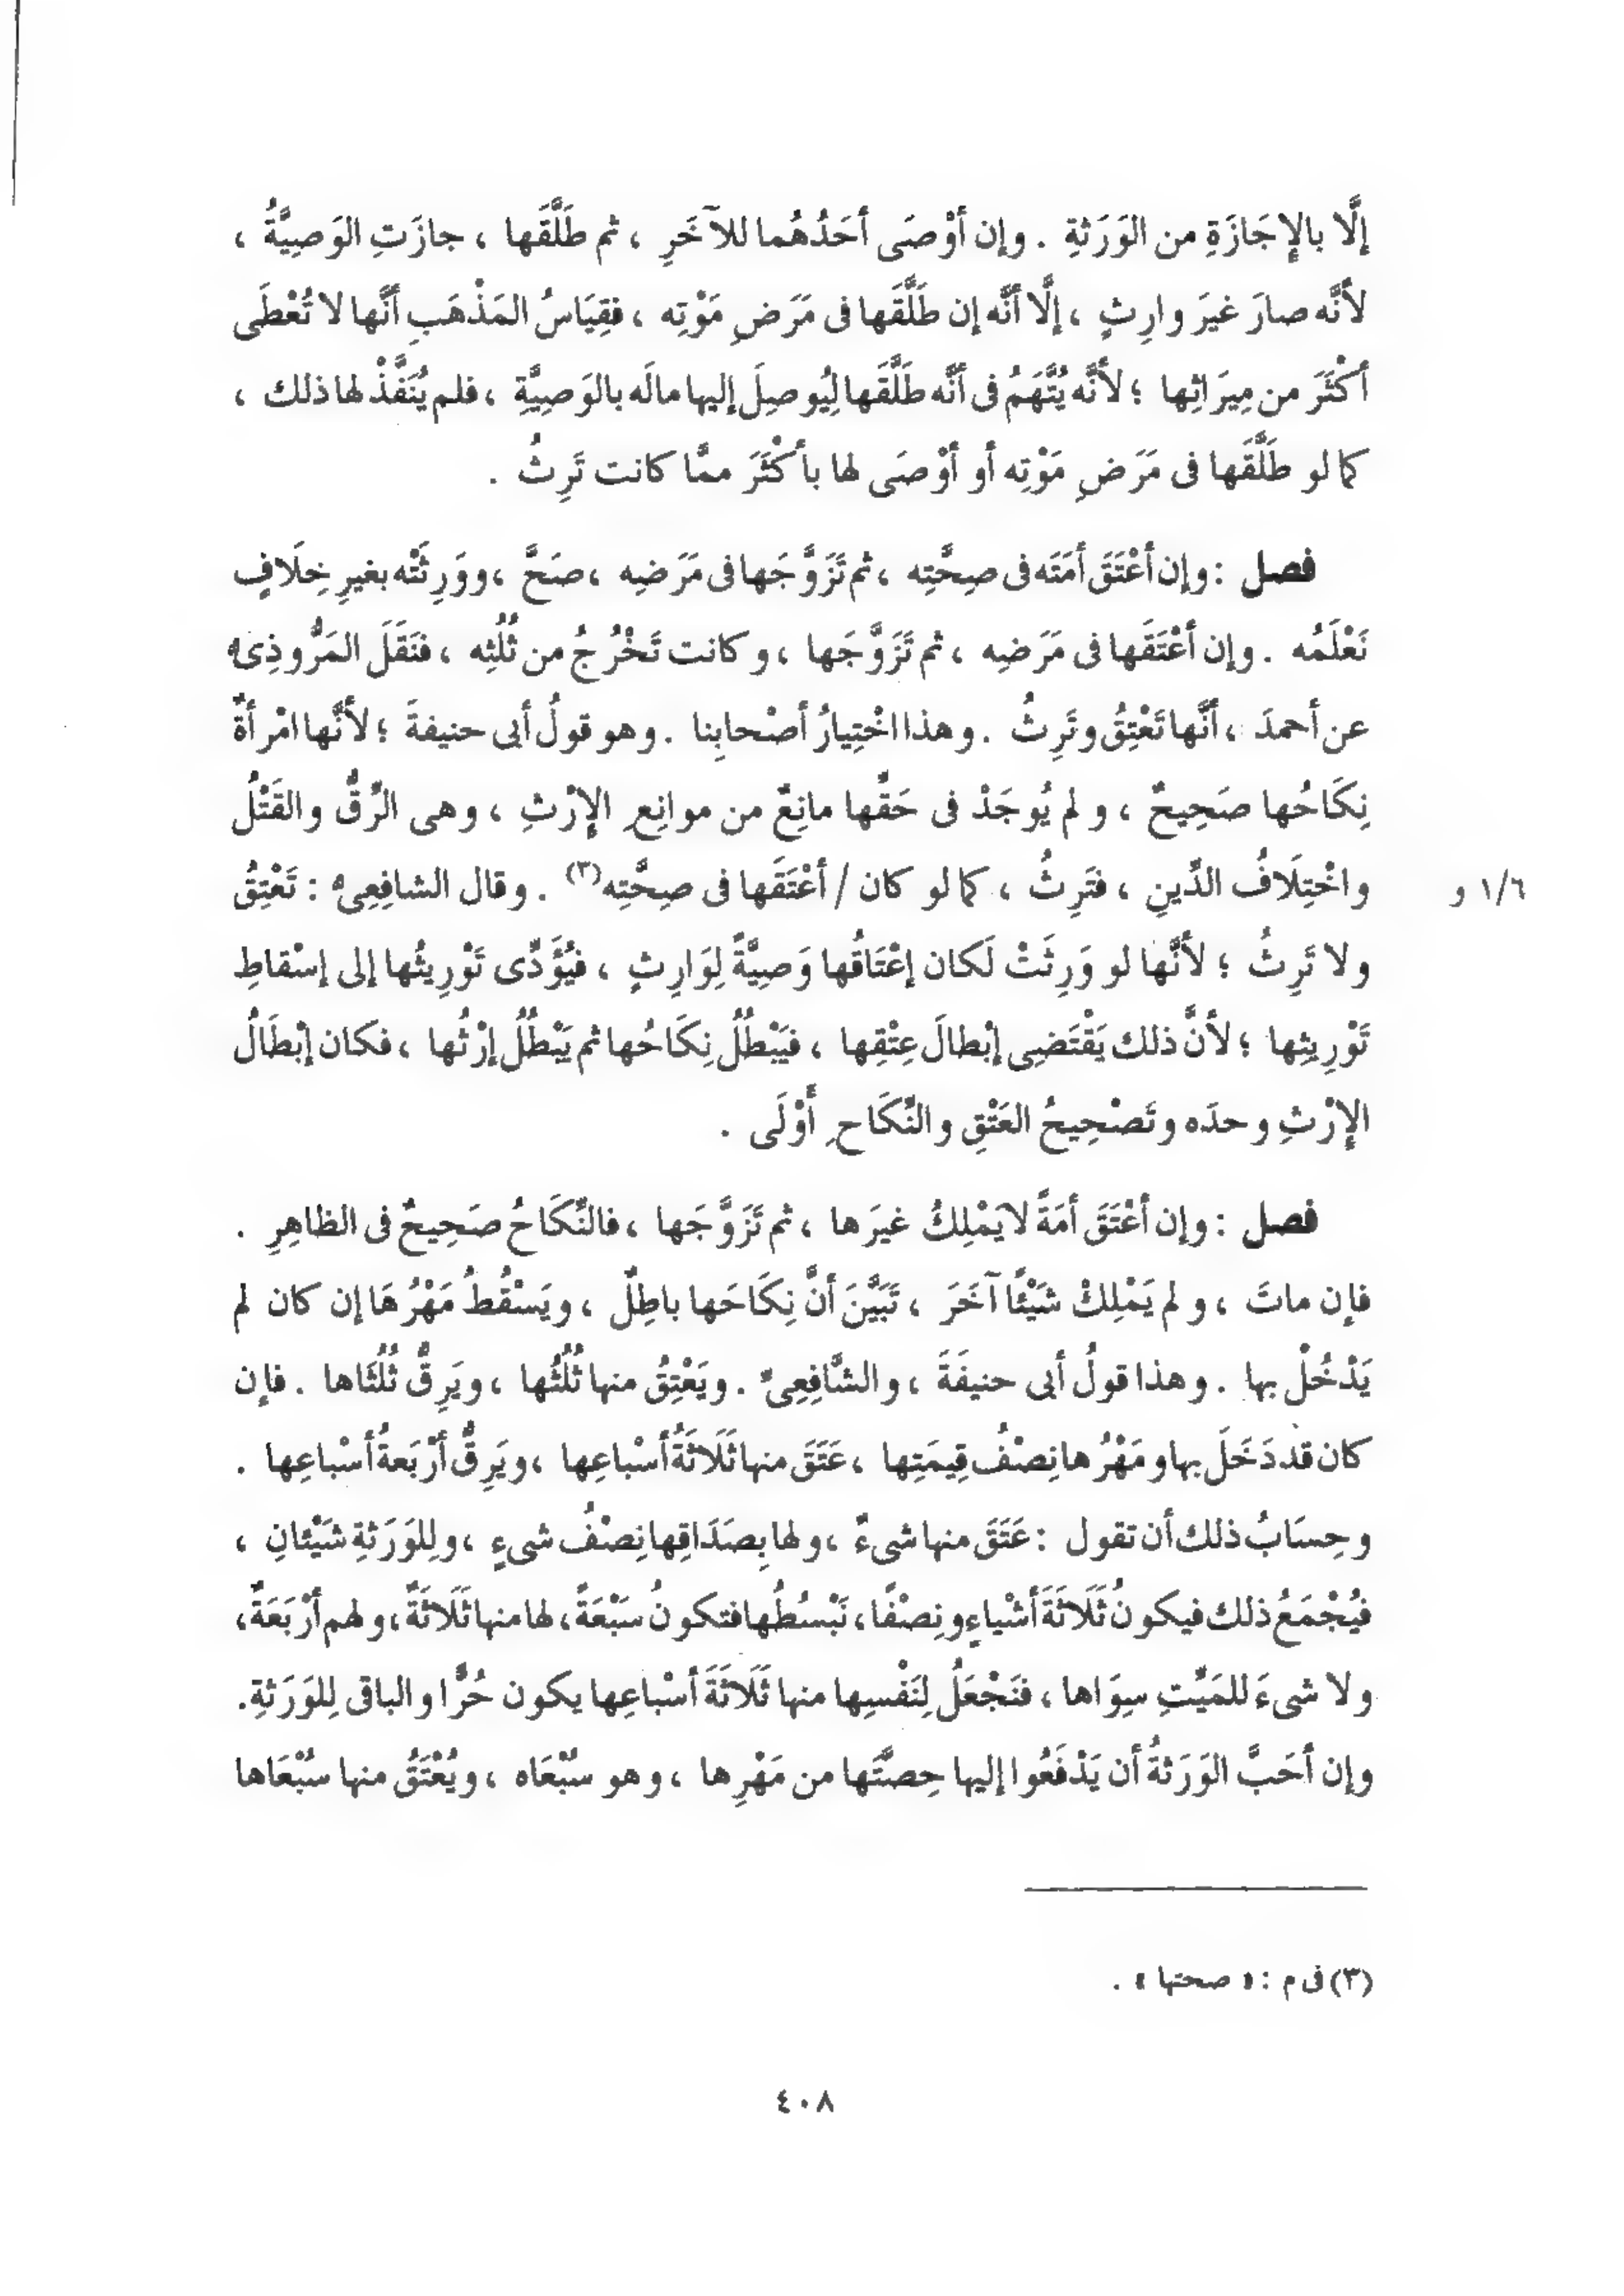 إلَّا بالإِجَازَةِ من الوَرَثةِ . وإن أوْصَى أحَدُهُما للآخَرِ ، ثم طَلَّقَها ، جازَتِ الوَصِيَّةُ ،
لأنَّه صارَ غيرَ وارِثٍ ، إلَّا أنَّه إن طَلَّقَها فى مَرَضِ مَوْتِه ، فقِيَاسُ المَذْهَبِ أنَّها لا تُعْطَى
أكْثَرَ من مِيرَاثِها ؛ لأنَّه يُتَّهَمُ فى أنَّه طَلَّقَها لِيُوصِلَ إليها مالَه بالوَصِيَّةِ ، فلم يُنَفَّذْ لها ذلك ،
كما لو طَلَّقَها فى مَرَضِ مَوْتِه أو أوْصَى لها بأكْثَرَ ممَّا كانت تَرِثُ .
فصل : وإن أعْتَقَ أمَتَه فى صِحَّتِه ، ثم تَزَوَّجَها فى مَرَضِه ، صَحَّ ، ووَرِثَتْه بغيرِ خِلَافٍ
نَعْلَمُه . وإن أعْتَقَها فى مَرَضِه ، ثم تَزَوَّجَها ، وكانت تَخْرُجُ من ثُلُثِه ، فنَقَلَ المَرُّوذِىُّ
عن أحمدَ ، أنَّها تَعْتِقُ وتَرِثُ . وهذا اخْتِيارُ أصْحابِنا . وهو قولُ أبى حنيفةَ ؛ لأنَّها امْرأةٌ
نِكَاحُها صَحِيحٌ ، ولم يُوجَدْ فى حَقِّها مانِعٌ من موانِعِ الإِرْثِ ، وهى الرِّقُّ والقَتْلُ
واخْتِلَافُ الدِّينِ ، فتَرِثُ ، كما لو كان / أعْتَقَها فى صِحَّتِه(٣) . وقال الشافِعِىُّ : تَعْتِقُ
١/٦ و
ولا تَرِثُ ؛ لأنَّها لو وَرِثَتْ لَكان إعْتَاقُها وَصِيَّةً لِوَارِثٍ ، فيُؤَدِّى تَوْرِيثُها إلى إسْقاطِ
تَوْرِيثِها ؛ لأنَّ ذلك يَقْتَضِى إبْطالَ عِتْقِها ، فيَبْطُلُ نِكَاحُها ثم يَبْطُلُ إرْثُها ، فكان إبْطَالُ
الإِرْثِ وحدَه وتَصْحِيحُ العَتْقِ والنِّكَاحِ أَوْلَى .
فصل : وإن أعْتَقَ أمَةً لا يَمْلِكُ غيرَها ، ثم تَزَوَّجَها ، فالنِّكَاحُ صَحِيحٌ فى الظاهِرِ .
فإن ماتَ ، ولم يَمْلِكْ شَيْئًا آخَرَ ، تَبَيَّنَ أنَّ نِكَاحَها باطِلٌ ، ويَسْقُطُ مَهْرُهَا إن كان لم
يَدْخُلْ بها . وهذا قولُ أبى حنيفَةَ ، والشَّافِعِىِّ . ويَعْتِقُ منها ثُلُثُها ، ويَرِقُّ ثُلُثَاها . فإن
كان قد دَخَلَ بها ومَهْرُها نِصْفُ قِيمَتِها ، عَتَقَ منها ثَلَاثَةُ أسْباعِها ، ويَرِقُّ أرْبَعةُ أسْباعِها .
وحِسَابُ ذلك أن تقول : عَتَقَ منها شىءٌ ، ولها بِصَدَاقِها نِصْفُ شىءٍ ، ولِلوَرَثةِ شَيْئانِ ،
فيُجْمَعُ ذلك فيكونُ ثَلَاثَةَ أشْياءٍ ونِصْفًا ، نَبْسُطُها فتكونُ سَبْعَةً ، لها منها ثَلَاثَةٌ ، ولهم أرْبَعَةٌ ،
ولا شىءَ للمَيِّتِ سِوَاها ، فنَجْعَلُ لِنَفْسِها منها ثَلَاثَةَ أسْباعِها يكون حُرًّا والباقى لِلوَرَثةِ .
وإن أحَبَّ الوَرَثةُ أن يَدْفَعُوا إليها حِصَّتَها من مَهْرِها ، وهو سُبْعَاه ، ويُعْتَقُ منها سُبْعَاها
(٣) فى م : « صحتها » .
٤٠٨